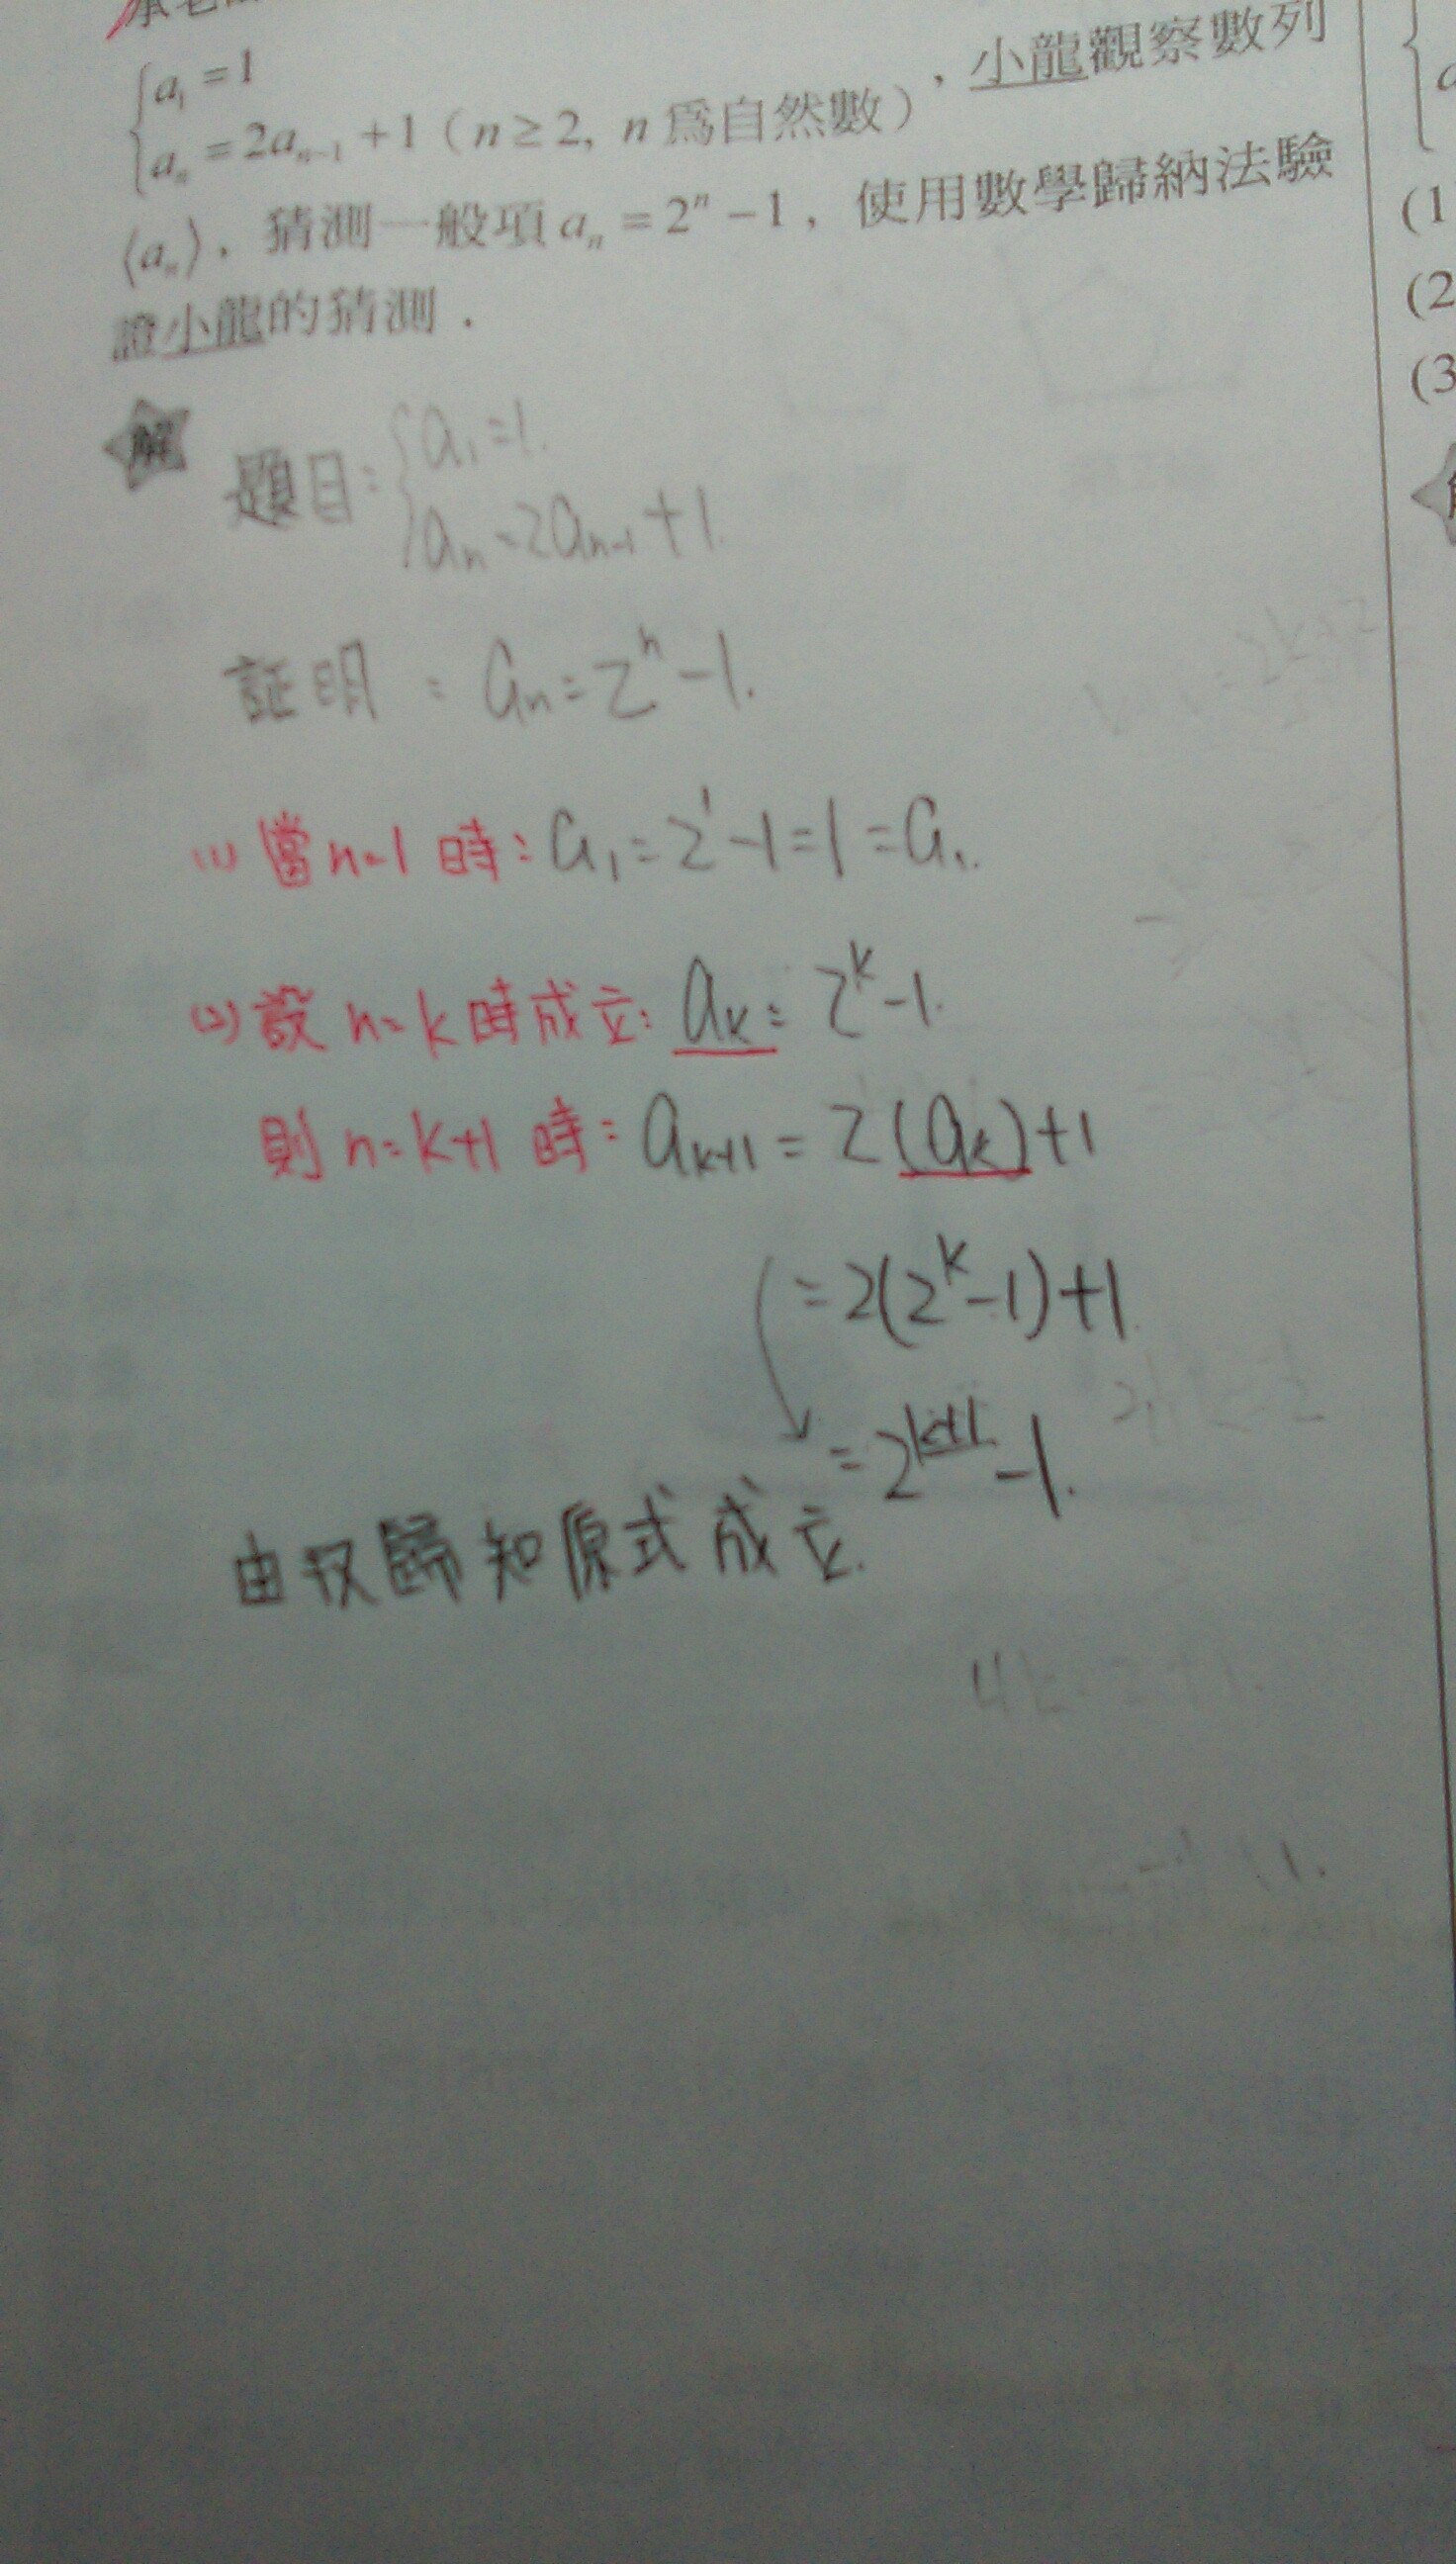 a₁ = 1
aₙ = 2aₙ₋₁ + 1（n ≥ 2, n 為自然數），小龍觀察數列
⟨aₙ⟩，猜測一般項 aₙ = 2ⁿ − 1，使用數學歸納法驗
證小龍的猜測．
解
題目：{a₁=1.
aₙ=2aₙ₋₁+1.
証明：aₙ=2ⁿ-1.
(1) 當n=1 時：a₁=2¹-1=1=a₁.
(2) 設 n=k 時成立：aₖ=2ᵏ-1.
則 n=k+1 時：aₖ₊₁=2(aₖ)+1
=2(2ᵏ-1)+1.
=2ᵏ⁺¹-1.
由歸知原式成立.
(1
(2
(3